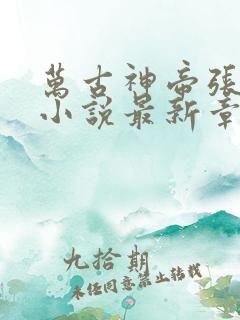 萬古神帝張
小說最新章
九拾期
未经同意禁止转载